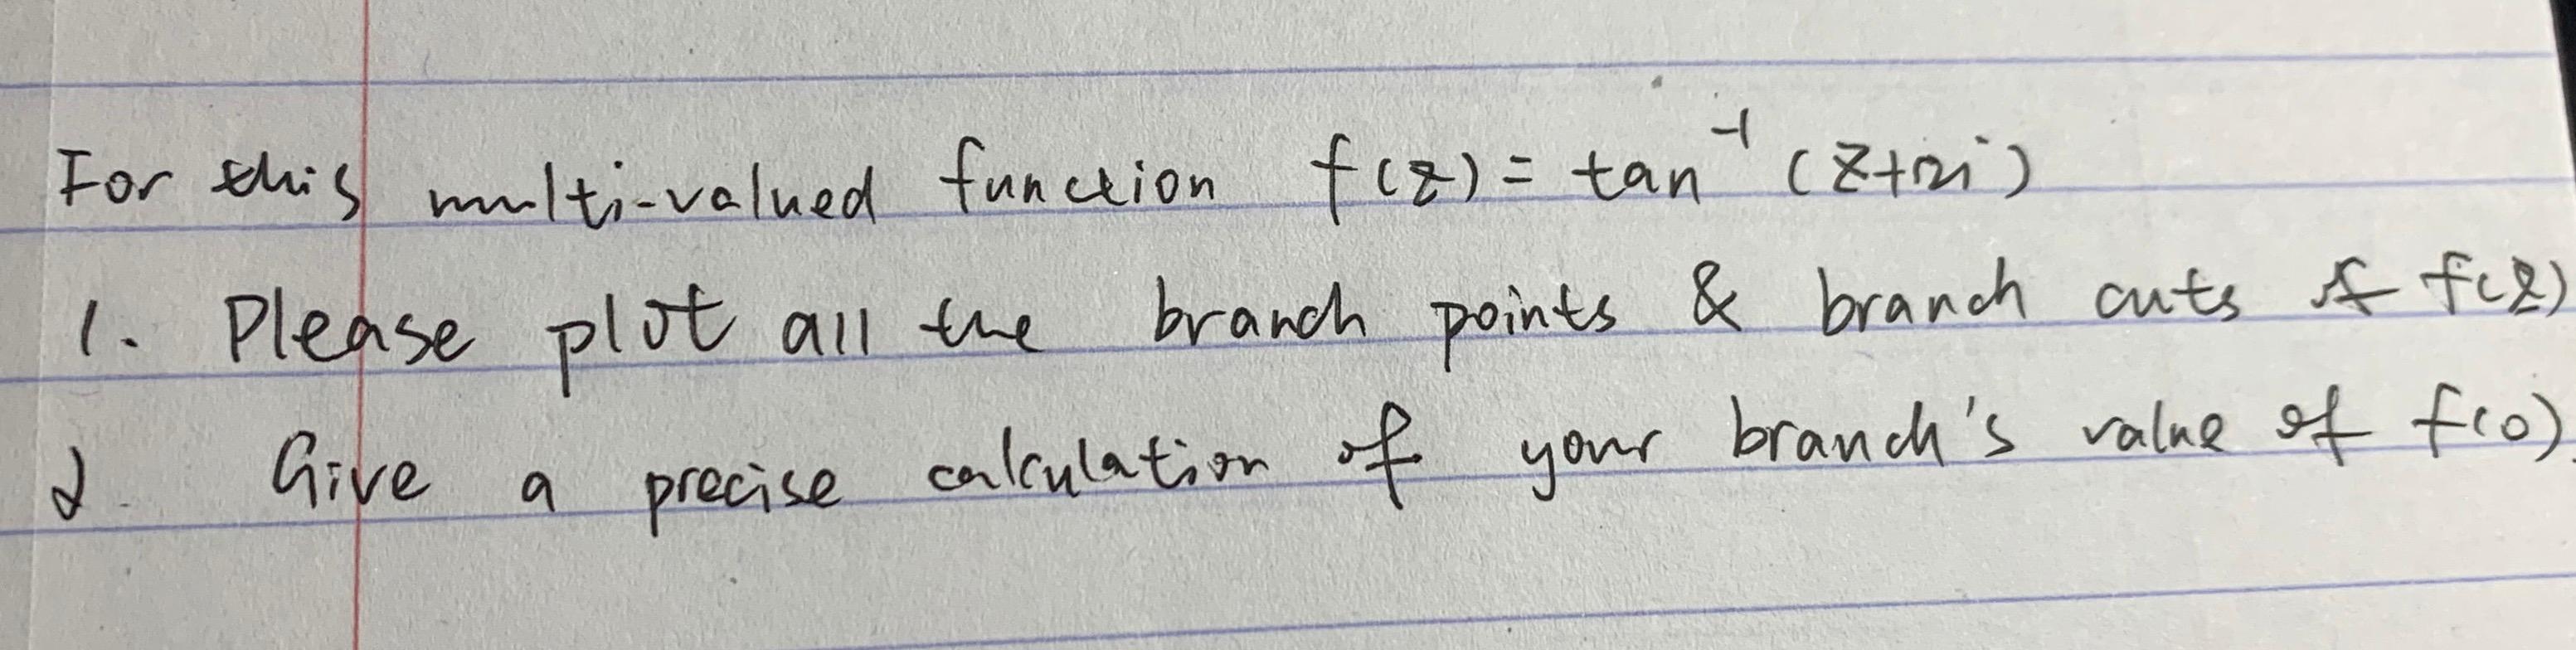 For this multi-valued function f(z) = tan⁻¹ (z+2i)
1. Please plot all the branch points & branch cuts of f(z)
2. Give a precise calculation of your branch's value of f(0).